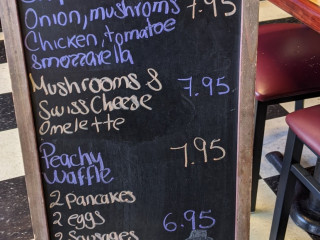 Onion, mushroms 7.95
Chicken, tomatoe
smozzarella
Mushrooms &
Swiss Cheese 7.95
Omelette
Peachy 7.95
Waffle
2 Pancakes
2 eggs 6.95
2 Sausages